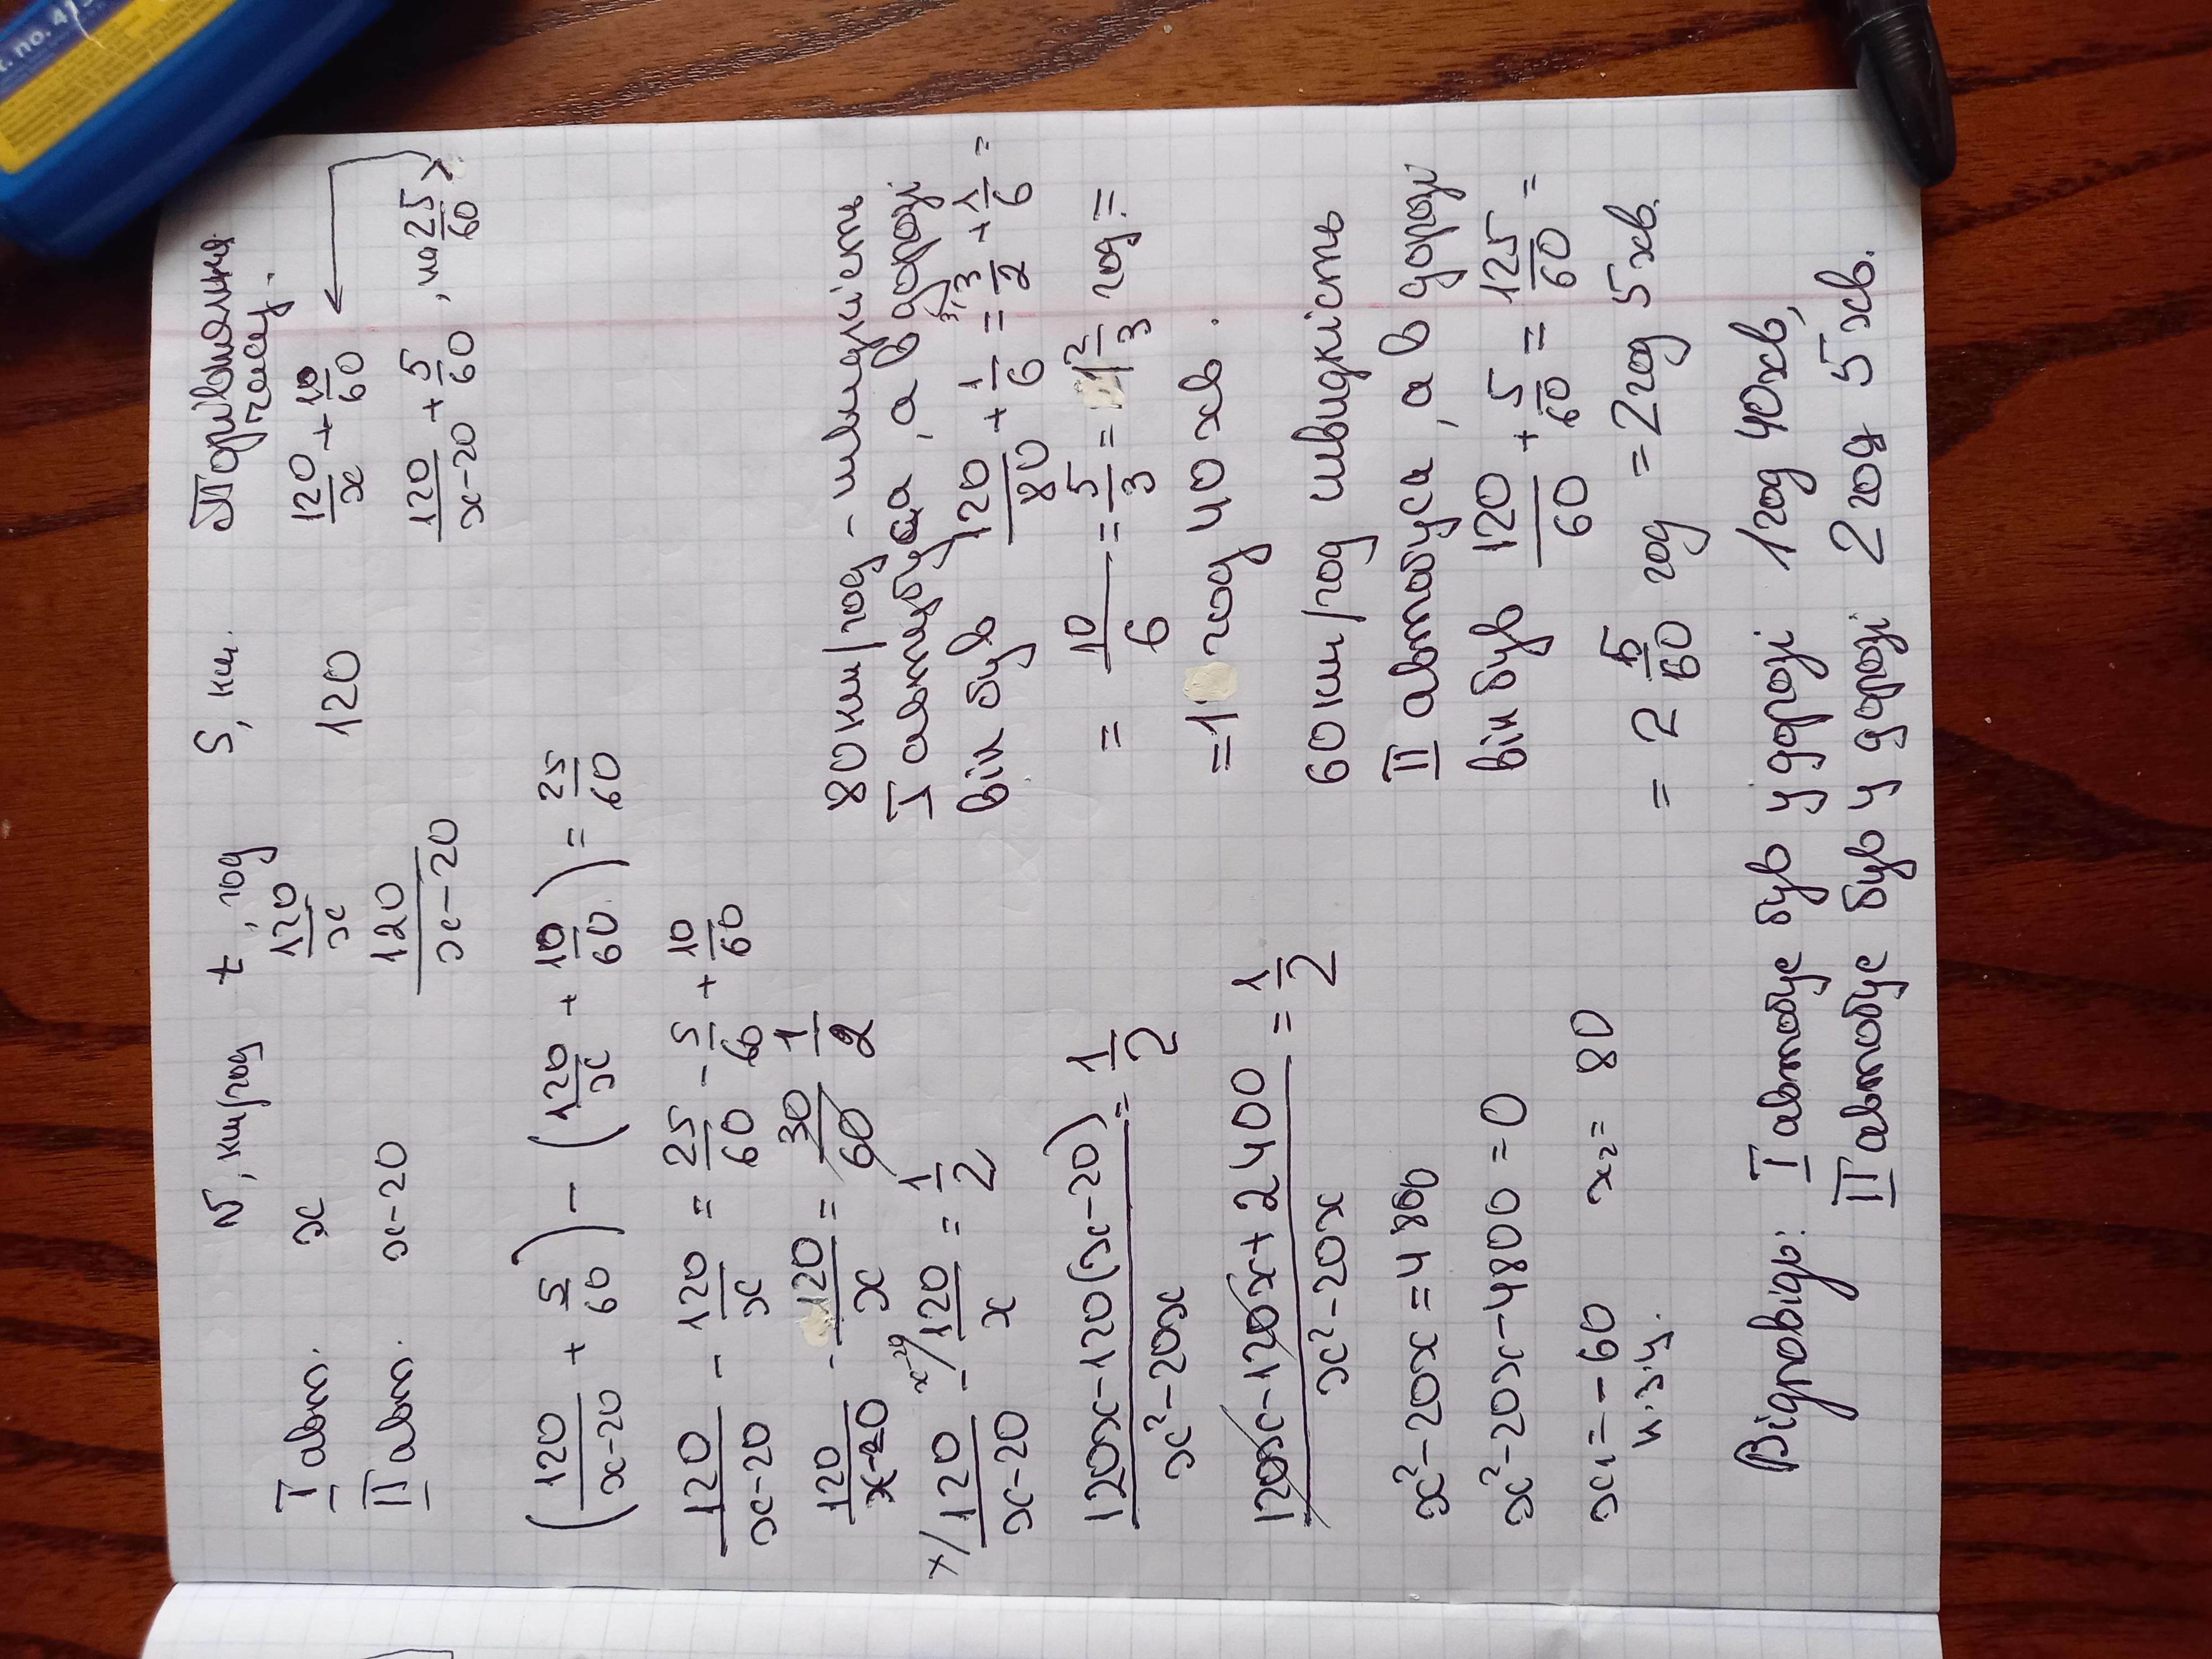 t. no. 4
v, км/год t, год S, км. Порівняння часу.
I авт. x 120/x 120 120/x + 10/60
II авт. x-20 120/x-20 120/x-20 + 5/60, на 25/60 >
(120/x-20 + 5/60) - (120/x + 10/60) = 25/60
120/x-20 - 120/x = 25/60 - 5/60 + 10/60
120/x-20 - 120/x = 30/60 1/2
x/ 120/x-20 - x-20/ 120/x = 1/2
120x-120(x-20)/x²-20x = 1/2
120x-120x+2400/x²-20x = 1/2
x²-20x=4800
x²-20x-4800=0
x₁=-60 x₂=80
н.з.у.
80км/год - швидкість
I автобуса, а в дорозі
він був 120/80 + 1/6 = 3/2 + 1/6 =
= 10/6 = 5/3 = 1 2/3 год =
=1 год 40 хв.
60км/год швидкість
II автобуса, а в дорозі
він був 120/60 + 5/60 = 125/60 =
= 2 5/60 год = 2год 5хв.
Відповідь: I автобус був у дорозі 1год 40хв,
II автобус був у дорозі 2 год 5 хв.